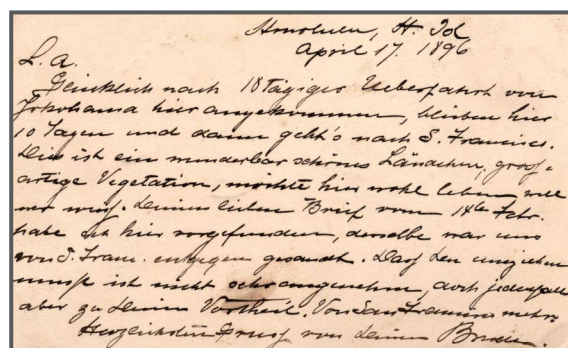 Honolulu, H. Isl.
April 17. 1896
L. A.
Glücklich nach 18 tägiger Ueberfahrt von
Yokohama hier angekommen, bleiben hier
10 Tagen und dann geht's nach S. Francisco.
Dies ist ein wunderbar schönes Ländchen, groß-
artige Vegetation, möchte hier wohl leben,
Deinen lieben Brief vom 14ten Febr.
habe ich hier vorgefunden, derselbe war uns
von S. Fran. entgegen gesandt. Daß Du umziehen
mußt ist nicht sehr angenehm, doch jedenfalls
aber zu Deinem Vortheil. Von San Francisco mehr.
Herzlichsten Gruß von Deinem Bruder.